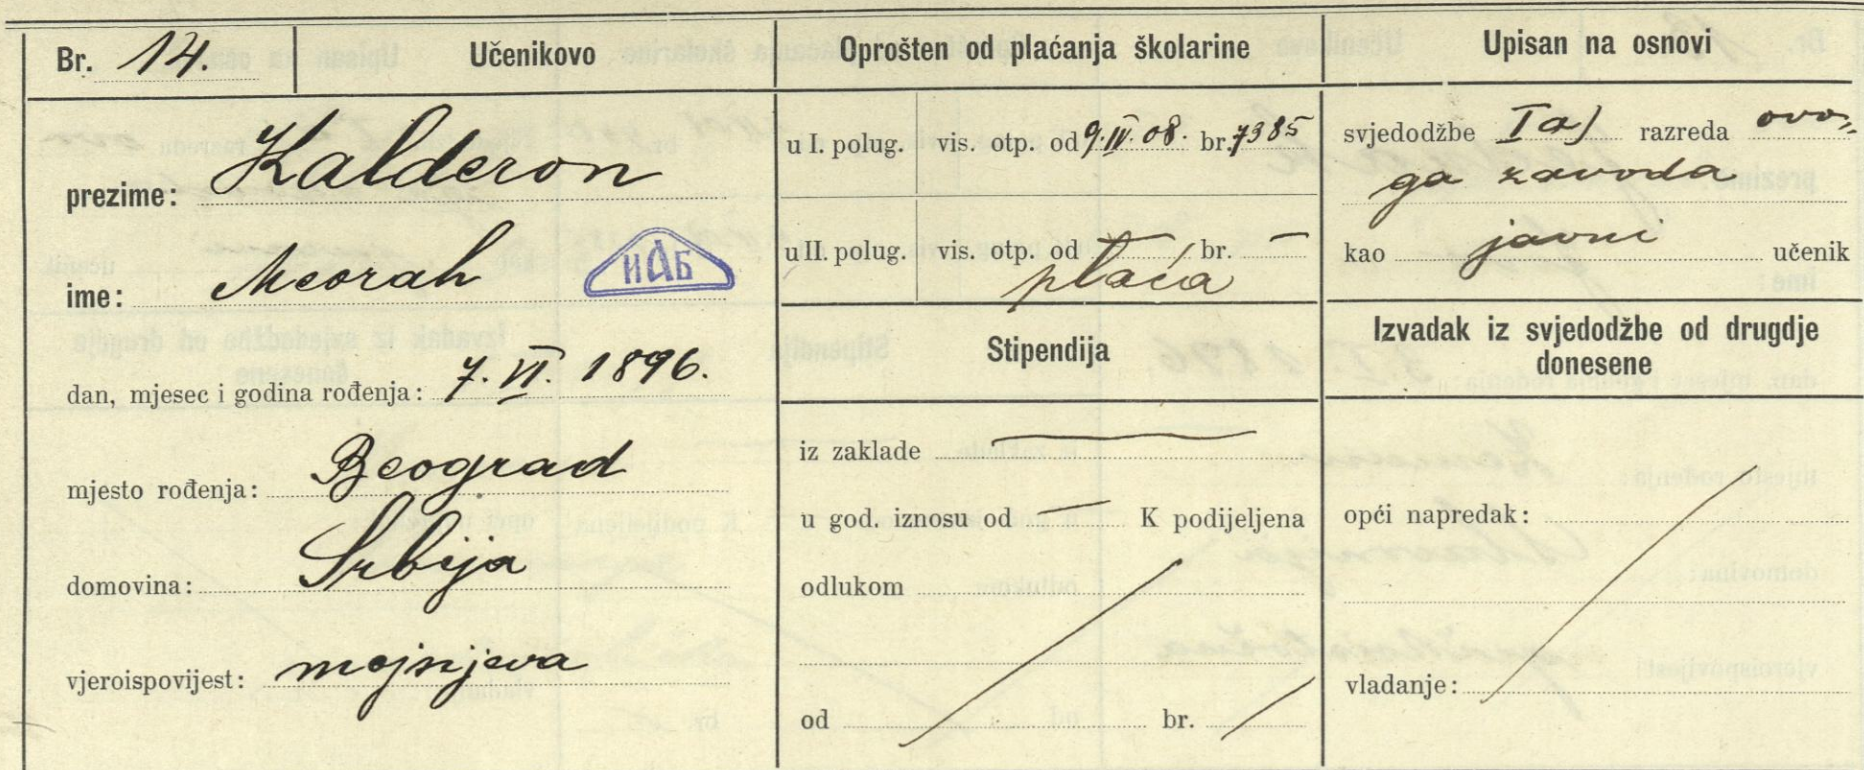 Br. 14.
Učenikovo
prezime: Kalderon
ime: Meorah
ИАБ
dan, mjesec i godina rođenja: 7. VI. 1896.
mjesto rođenja: Beograd
domovina: Srbija
vjeroispovijest: mojsijeva
Oprošten od plaćanja školarine
u I. polug. vis. otp. od 9. IV. 08. br. 7385
u II. polug. vis. otp. od — br. —
plaća
Stipendija
iz zaklade —
u god. iznosu od — K podijeljena
odlukom
od br.
Upisan na osnovi
svjedodžbe I a) razreda ovo-
ga zavoda
kao javni učenik
Izvadak iz svjedodžbe od drugdje
donesene
opći napredak:
vladanje: